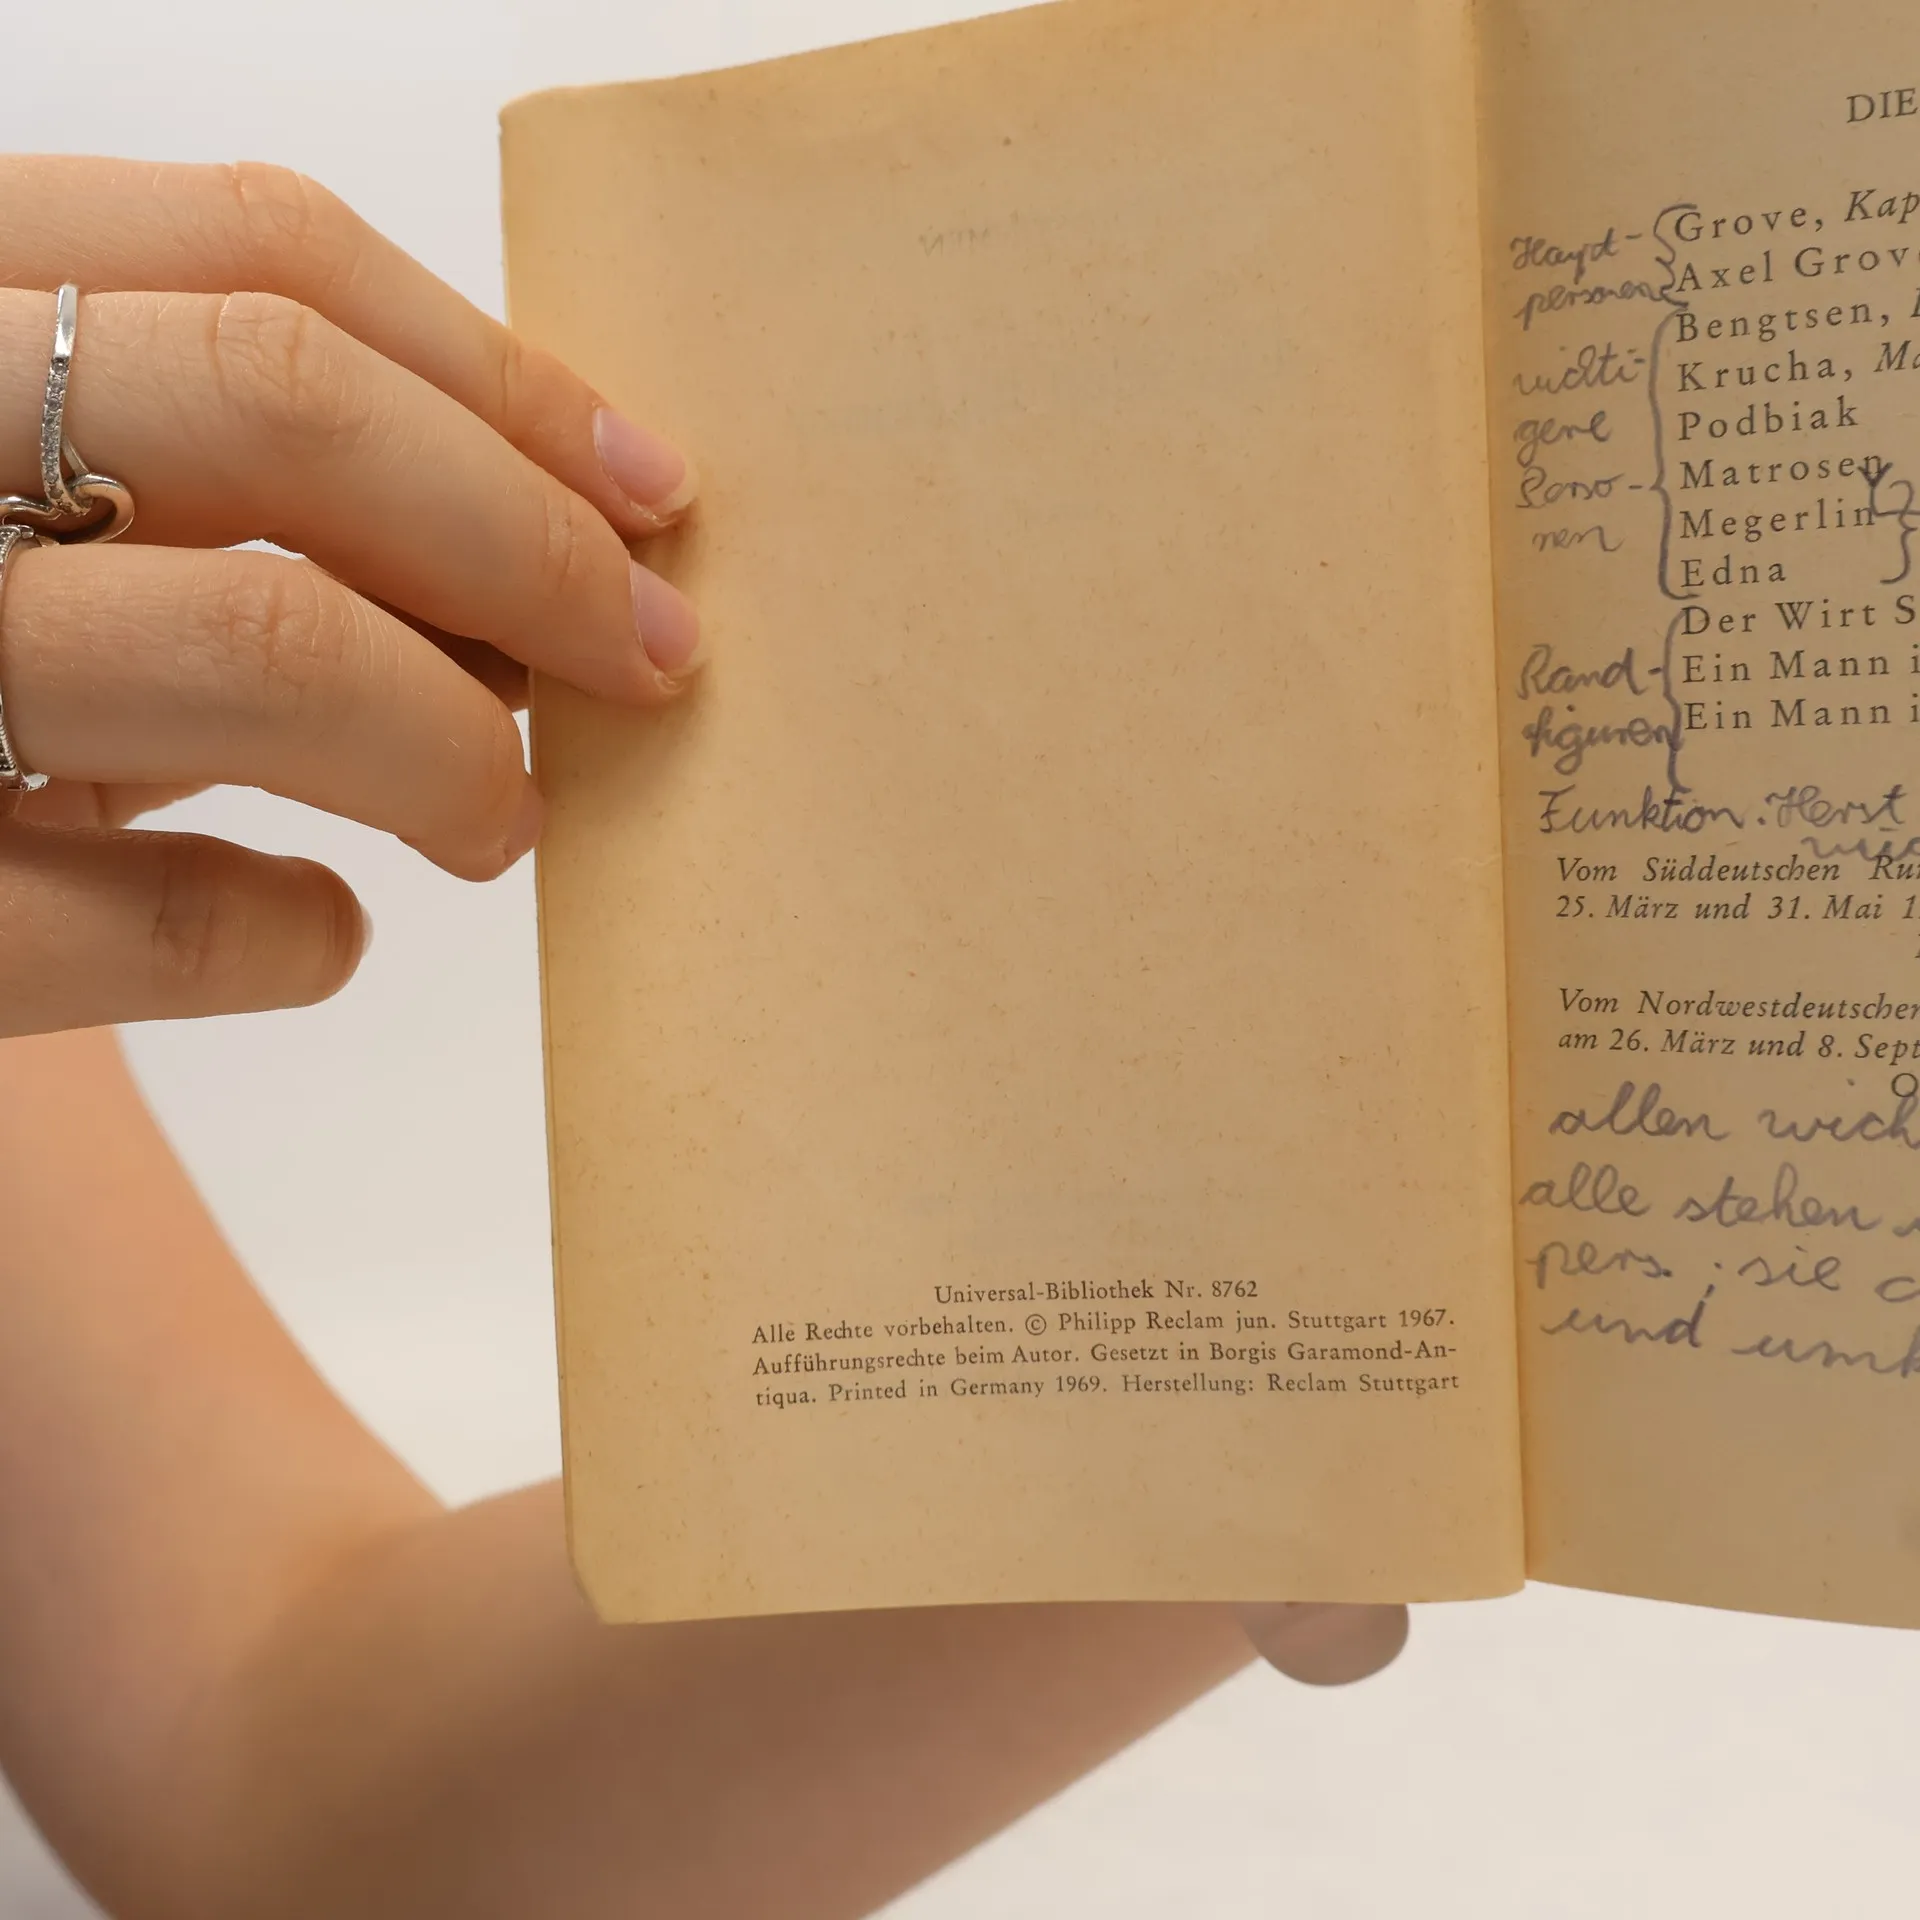 Universal-Bibliothek Nr. 8762
Alle Rechte vorbehalten. © Philipp Reclam jun. Stuttgart 1967.
Aufführungsrechte beim Autor. Gesetzt in Borgis Garamond-An-
tiqua. Printed in Germany 1969. Herstellung: Reclam Stuttgart
DIE
Haupt-
personen
Grove, Kap
Axel Grov
Bengtsen,
Krucha, Ma
Podbiak
Matrosen
Megerlin
Edna
wichti-
gere
Perso-
nen
Der Wirt S
Ein Mann i
Ein Mann i
Rand-
figuren
Funktion.
Vom Süddeutschen Ru
25. März und 31. Mai 1
Vom Nordwestdeutschen
am 26. März und 8. Sept
allen wich
alle stehen
pers. ; sie
und umk